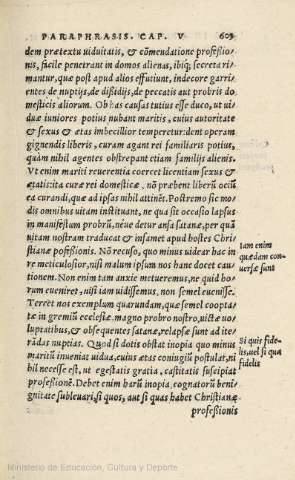 PARAPHRASIS. CAP. V 603
dem prætextu uiduitatis, & cõmendatione profeßio-
nis, facile penetrant in domos alienas, ibiq; secreta ri-
mantur, quæ post apud alios effutiunt, indecore garri-
entes de nuptijs, de dißidijs, de peccatis aut probris do-
mesticis aliorum. Ob has causas tutius esse duco, ut ui-
duæ iuniores potius nubant maritis, cuius autoritate
& sexus & ætas imbecillior temperetur: dent operam
gignendis liberis, curam agant rei familiaris potius,
quàm nihil agentes obstrepant etiam familijs alienis.
Vt enim mariti reuerentia coërcet licentiam sexus &
ætatis: ita curæ rei domesticæ, nõ præbent liberũ ociũ
ea curandi, quæ ad ipsas nihil attinët. Postremò sic mo-
dis omnibus uitam instituant, ne qua sit occasio lapsus
in manifestum probrũ, néue detur ansa satanæ, per quã
uitam nostram traducat & infamet apud hostes Chri-
stianæ poßeßionis. Nõ recuso, quo minus uidear hac in
re meticulosior, nisi malum ipsum nos hanc docet cau-
tionem. Non enim tam anxiè metueremus, ne quid ho-
rum eueniret, nisi iam uidissemus, non semel euenisse.
Terret nos exemplum quarundam, quæ semel coopta-
tæ in gremiũ ecclesiæ, magno probro nostro, uictæ uo-
luptatibus, & obsequentes satanæ, relapsæ sunt ad ite-
ratas nuptias. Quòd si dotis obstat inopia quo minus
maritũ inueniat uidua, cuius ætas coniugiũ postulat, ni
hil necesse est, ut egestatis gratia, castitatis suscipiat
profeßionẽ. Debet enim harũ inopia, cognatorũ beni
gnitate subleuari, si quos, aut si quas habet Christianæ
profeßionis
Iam enim
quædam con-
uersæ sunt
Si quis fide-
lis, uel si qua
fidelis
Ministerio de Educación, Cultura y Deporte